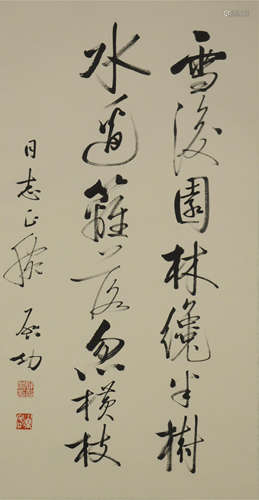 雪後園林纔半樹
水邊籬落忽橫枝
同志正腕 啟功